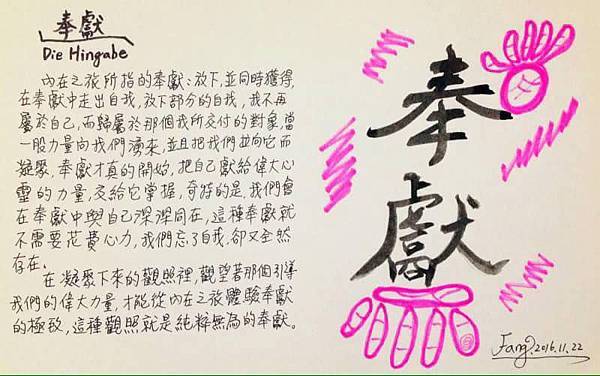 奉獻
Die Hingabe
內在之旅所指的奉獻：放下，並同時獲得，
在奉獻中走出自我，放下部分的自我，我不再
屬於自己，而歸屬於那個我所交付的對象，當
一股力量向我們湧來，並且把我們並向它而
凝聚，奉獻才真的開始，把自己獻給偉大心
靈的力量，交給它掌握，奇特的是，我們會
在奉獻中與自己深深同在，這種奉獻就
不需要花費心力，我們忘了自我，卻又全然
存在。
在凝聚下來的觀照裡，觀望著那個引導
我們的偉大力量，才能從內在之旅體驗奉獻
的極致，這種觀照就是純粹無為的奉獻。
奉獻
Fang. 2016.11.22